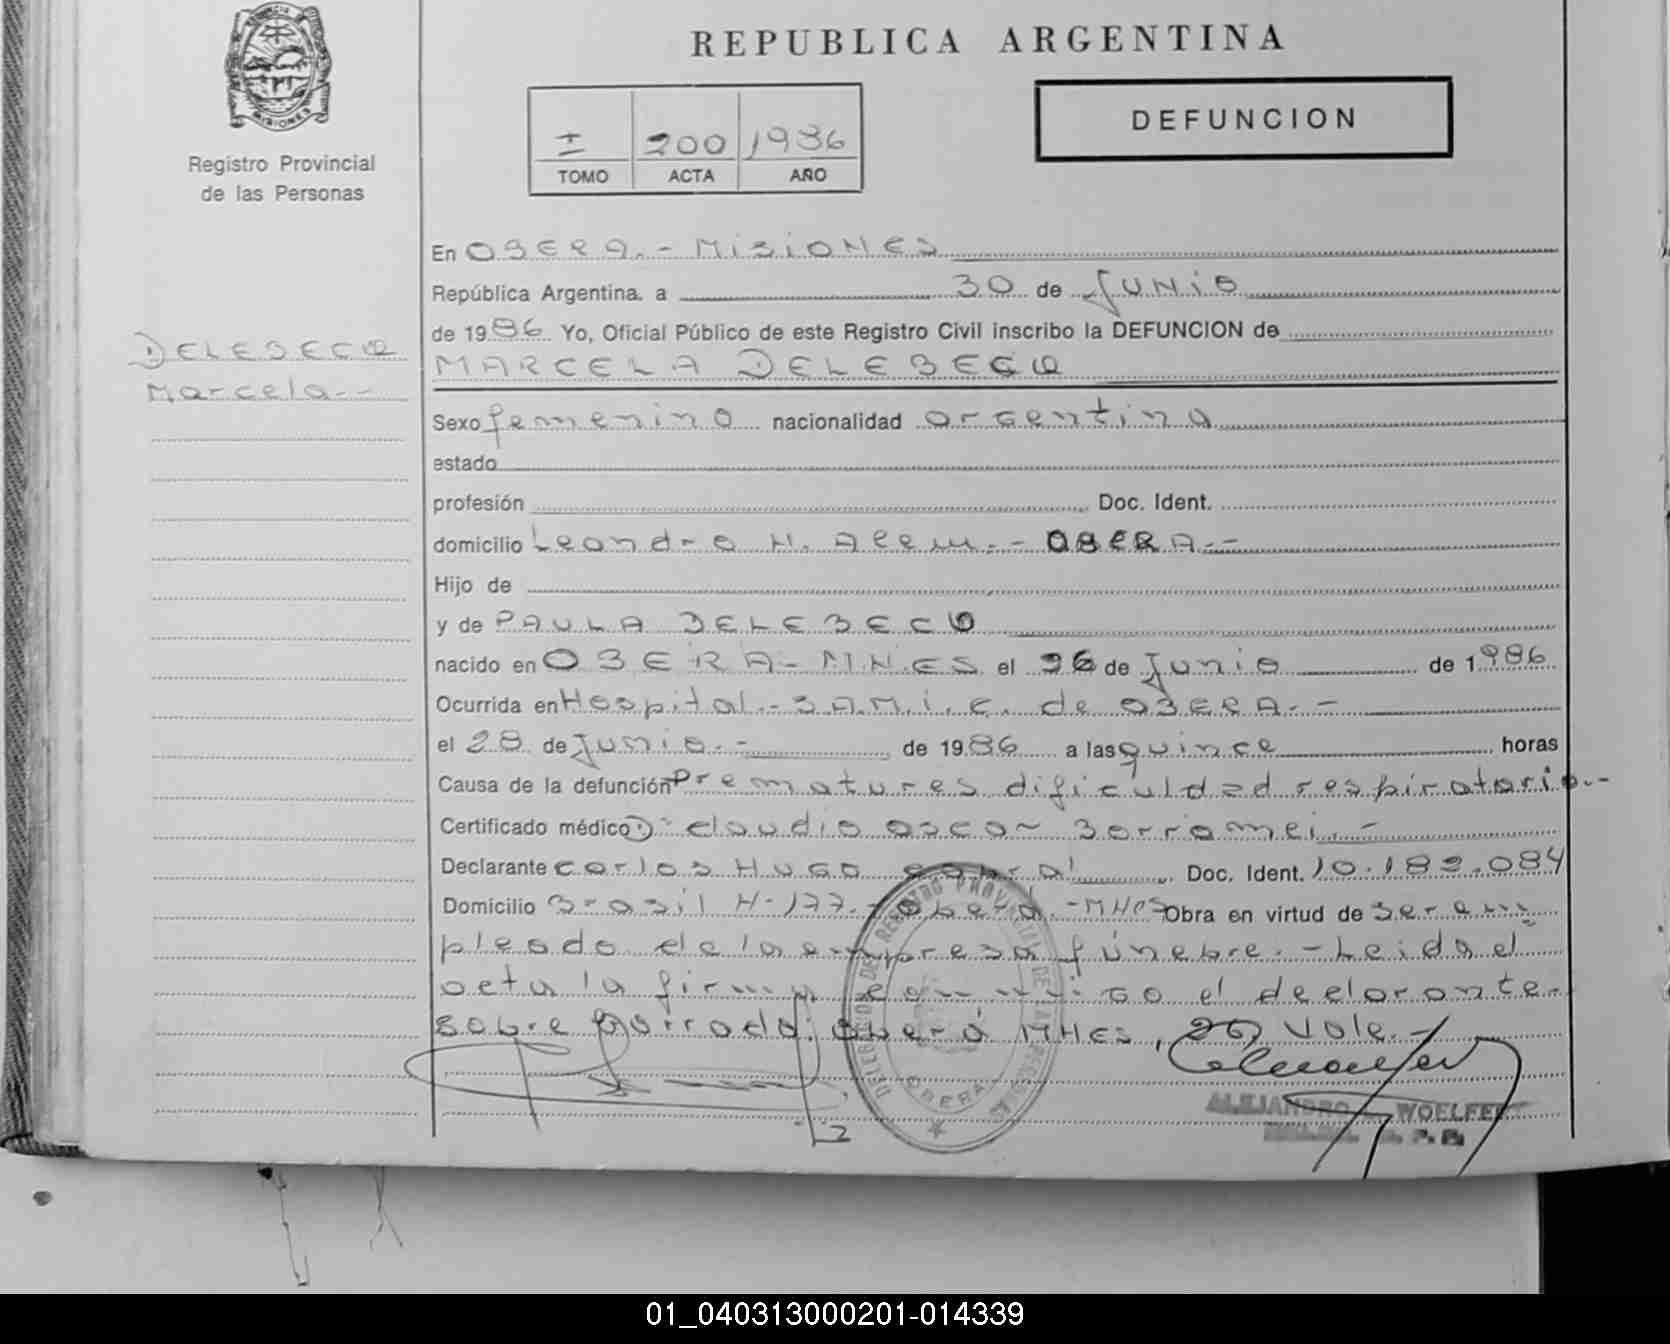 REPUBLICA ARGENTINA
MISIONES
Registro Provincial
de las Personas
I 200 1986
TOMO ACTA AÑO
DEFUNCION
DELEBECQ
Marcela.-
En OBERA.- MISIONES
República Argentina. a 30 de Junio
de 1986 Yo, Oficial Público de este Registro Civil inscribo la DEFUNCION de
MARCELA DELEBECQ
Sexo femenino nacionalidad argentina
estado
profesión Doc. Ident.
domicilio Leandro N. Alem.- OBERA.-
Hijo de
y de PAULA DELEBECQ
nacido en OBERA- MNES el 26 de Junio de 1986
Ocurrida en Hospital.- S.A.M.i.C. de OBERA.-
el 28 de Junio.- de 1986 a las quince horas
Causa de la defunción Prematures dificuldad respiratoria.-
Certificado médico Dr Claudio Oscar Borromei.-
Declarante Carlos Hugo Doc. Ident. 10.182.084
Domicilio Brasil N-177.- Oberá.- MNES Obra en virtud de ser em
pleado de la empresa fúnebre.- Leida el
acta la firma conmigo el declarante.
sobre borrado: Oberá MNES, 26, Vale.-
DELEGACION DEL REGISTRO PROVINCIAL DE LAS PERSONAS
OBERA
ALEJANDRO WOELFERT
01_040313000201-014339